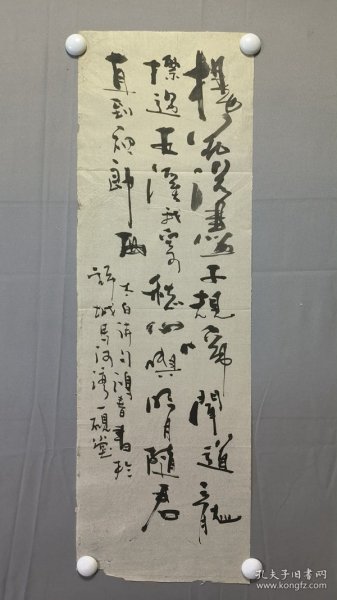 楊花落盡子規啼聞道龍
標過五溪我寄愁心與明月隨君
直到夜郎西
太白詩句春書於
城馬河灣一硯堂
孔夫子旧书网
www.kongfz.com